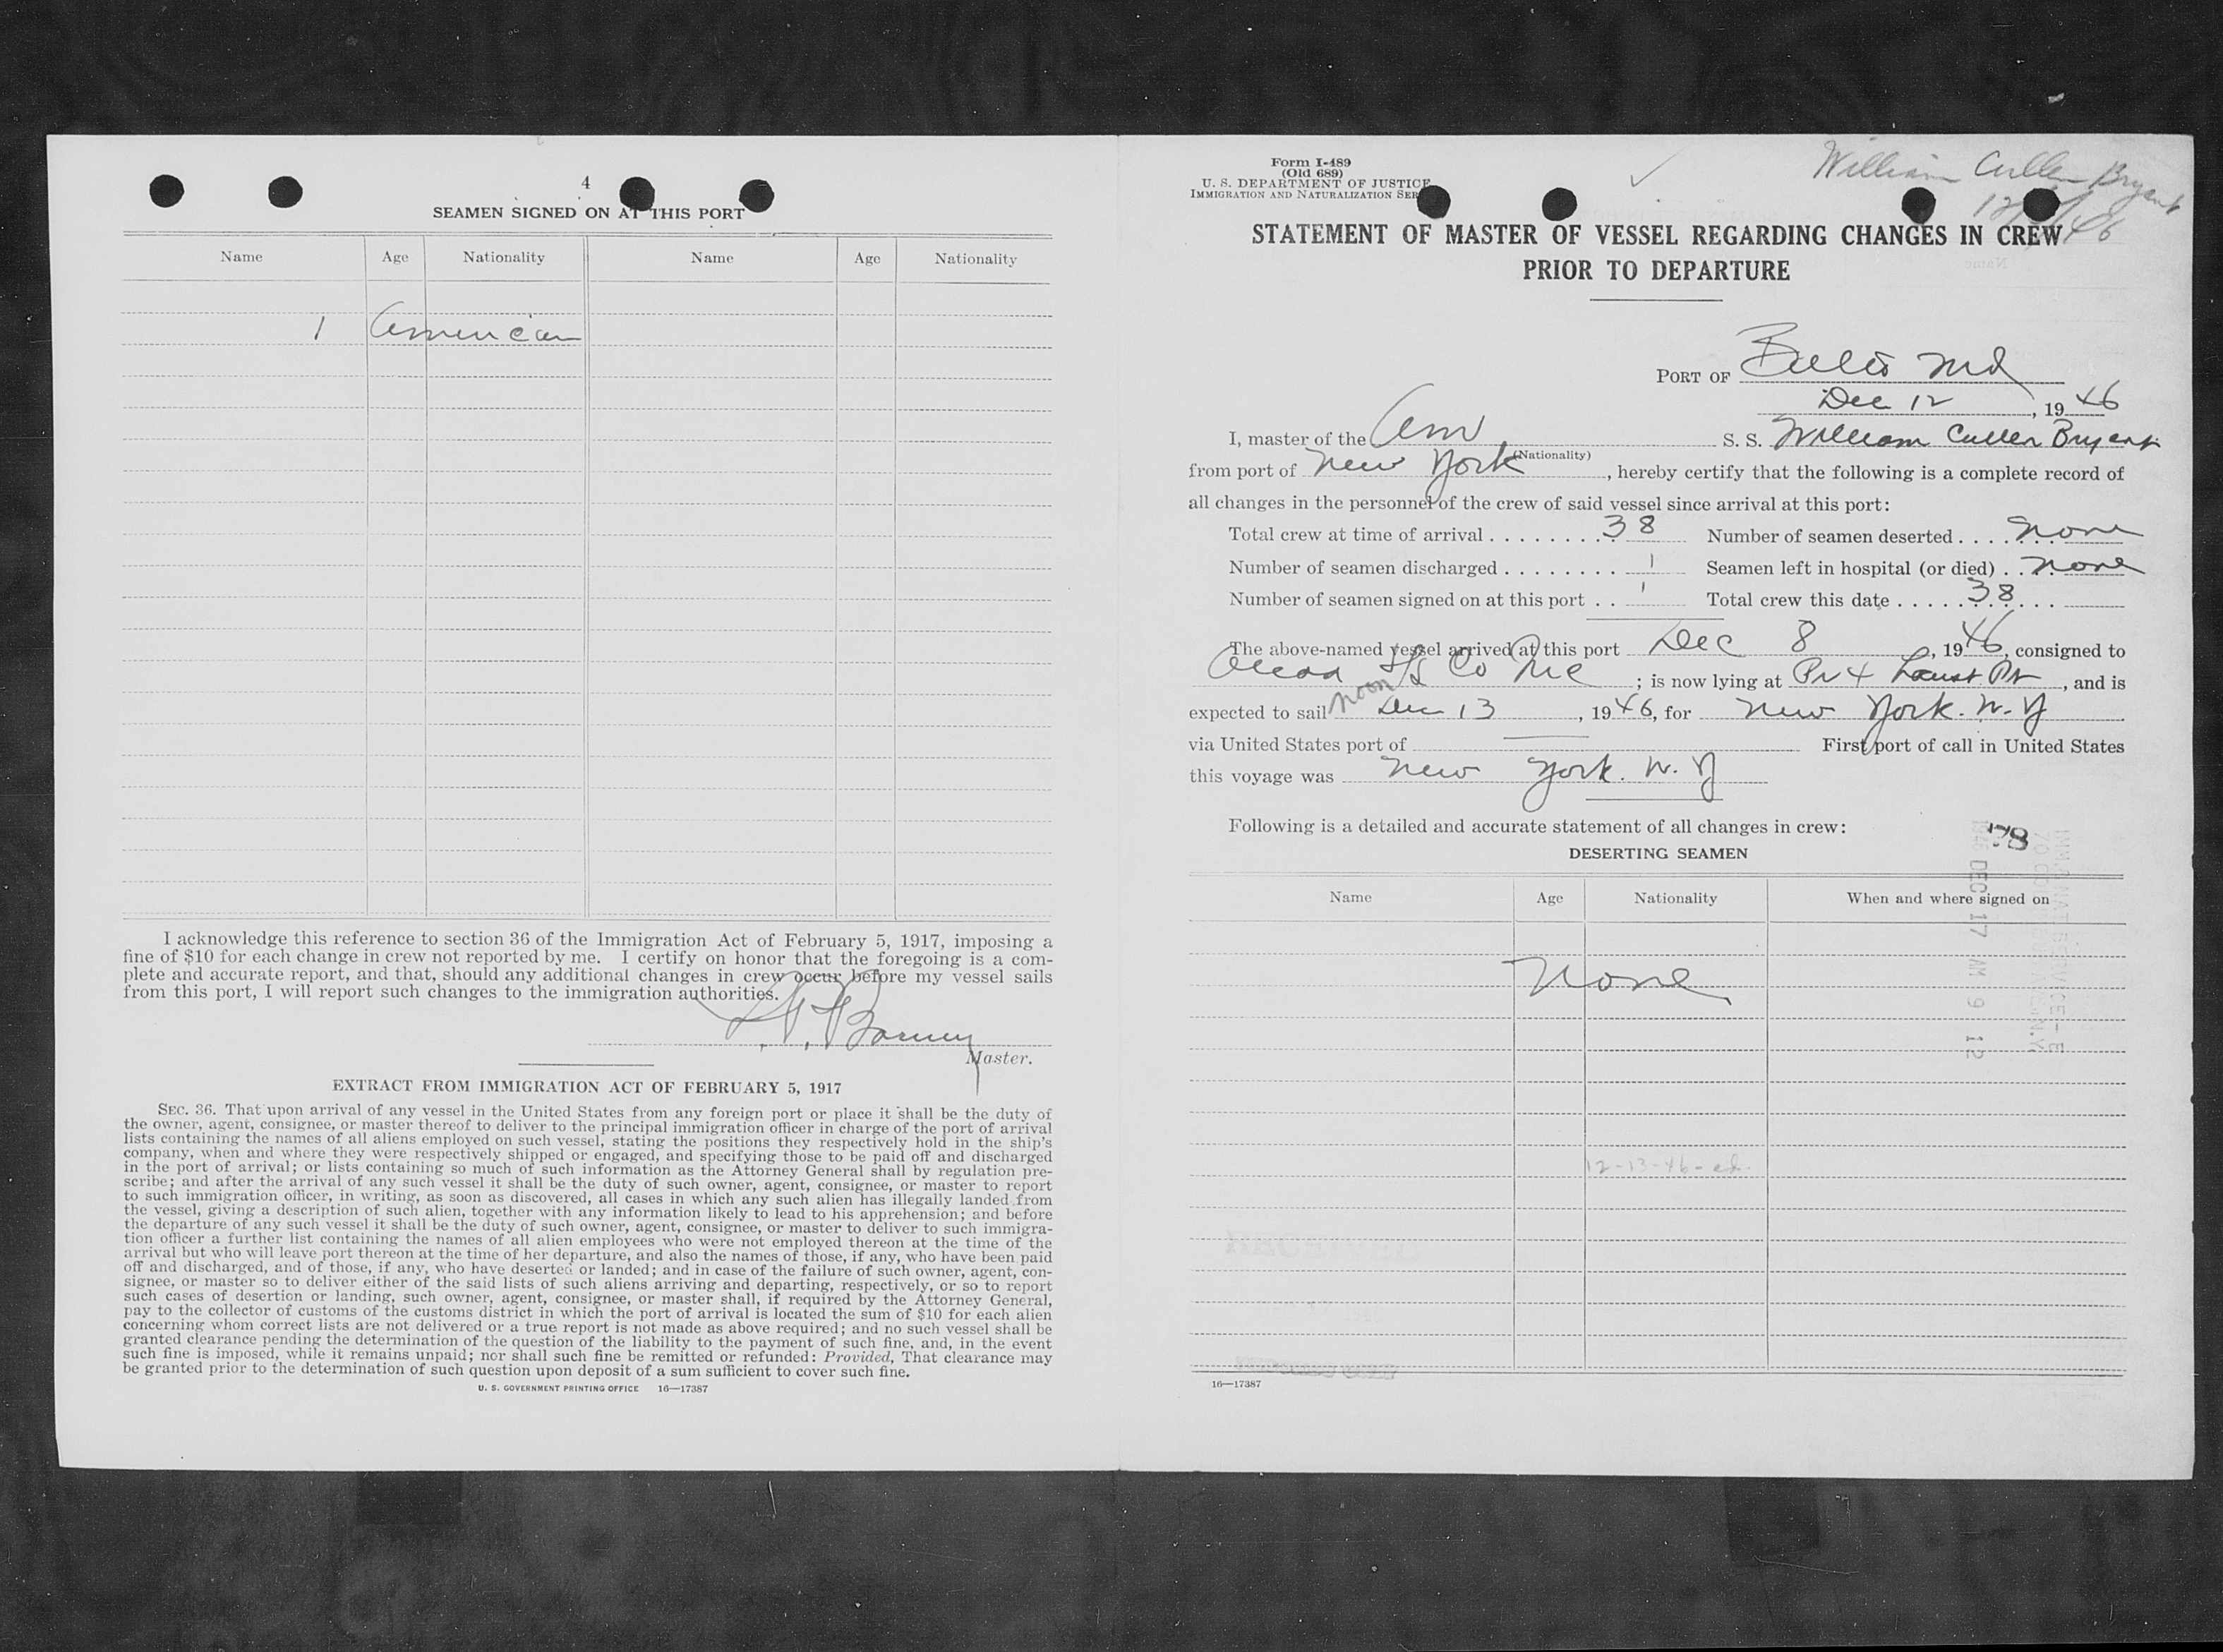 4
SEAMEN SIGNED ON AT THIS PORT
Name Age Nationality Name Age Nationality
1 American
I acknowledge this reference to section 36 of the Immigration Act of February 5, 1917, imposing a
fine of $10 for each change in crew not reported by me. I certify on honor that the foregoing is a com-
plete and accurate report, and that, should any additional changes in crew occur before my vessel sails
from this port, I will report such changes to the immigration authorities.
Master.
EXTRACT FROM IMMIGRATION ACT OF FEBRUARY 5, 1917
SEC. 36. That upon arrival of any vessel in the United States from any foreign port or place it shall be the duty of
the owner, agent, consignee, or master thereof to deliver to the principal immigration officer in charge of the port of arrival
lists containing the names of all aliens employed on such vessel, stating the positions they respectively hold in the ship's
company, when and where they were respectively shipped or engaged, and specifying those to be paid off and discharged
in the port of arrival; or lists containing so much of such information as the Attorney General shall by regulation pre-
scribe; and after the arrival of any such vessel it shall be the duty of such owner, agent, consignee, or master to report
to such immigration officer, in writing, as soon as discovered, all cases in which any such alien has illegally landed from
the vessel, giving a description of such alien, together with any information likely to lead to his apprehension; and before
the departure of any such vessel it shall be the duty of such owner, agent, consignee, or master to deliver to such immigra-
tion officer a further list containing the names of all alien employees who were not employed thereon at the time of the
arrival but who will leave port thereon at the time of her departure, and also the names of those, if any, who have been paid
off and discharged, and of those, if any, who have deserted or landed; and in case of the failure of such owner, agent, con-
signee, or master so to deliver either of the said lists of such aliens arriving and departing, respectively, or so to report
such cases of desertion or landing, such owner, agent, consignee, or master shall, if required by the Attorney General,
pay to the collector of customs of the customs district in which the port of arrival is located the sum of $10 for each alien
concerning whom correct lists are not delivered or a true report is not made as above required; and no such vessel shall be
granted clearance pending the determination of the question of the liability to the payment of such fine, and, in the event
such fine is imposed, while it remains unpaid; nor shall such fine be remitted or refunded: Provided, That clearance may
be granted prior to the determination of such question upon deposit of a sum sufficient to cover such fine.
U. S. GOVERNMENT PRINTING OFFICE 16—17387
Form I-489
(Old 689)
U. S. DEPARTMENT OF JUSTICE
IMMIGRATION AND NATURALIZATION SER
William Cullen Bryant
STATEMENT OF MASTER OF VESSEL REGARDING CHANGES IN CREW
PRIOR TO DEPARTURE
PORT OF Balto Md
Dec 12, 1946
I, master of the Am S. S. William Cullen Bryant
(Nationality)
from port of New York, hereby certify that the following is a complete record of
all changes in the personnel of the crew of said vessel since arrival at this port:
Total crew at time of arrival 38 Number of seamen deserted none
Number of seamen discharged 1 Seamen left in hospital (or died) none
Number of seamen signed on at this port 1 Total crew this date 38
The above-named vessel arrived at this port Dec 8, 1946, consigned to
S/S Co Inc; is now lying at Pr 4 Locust Pt, and is
expected to sail noon Dec 13, 1946, for New York. N. Y
via United States port of First port of call in United States
this voyage was New York. N. Y
Following is a detailed and accurate statement of all changes in crew:
78
DESERTING SEAMEN
Name Age Nationality When and where signed on
1946 DEC 17 AM 9 12
None
12-13-46-ed.
16—17387